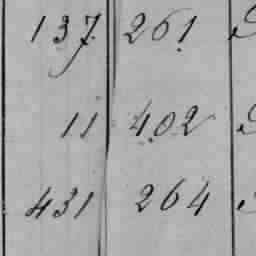 137 261
11 402
431 264